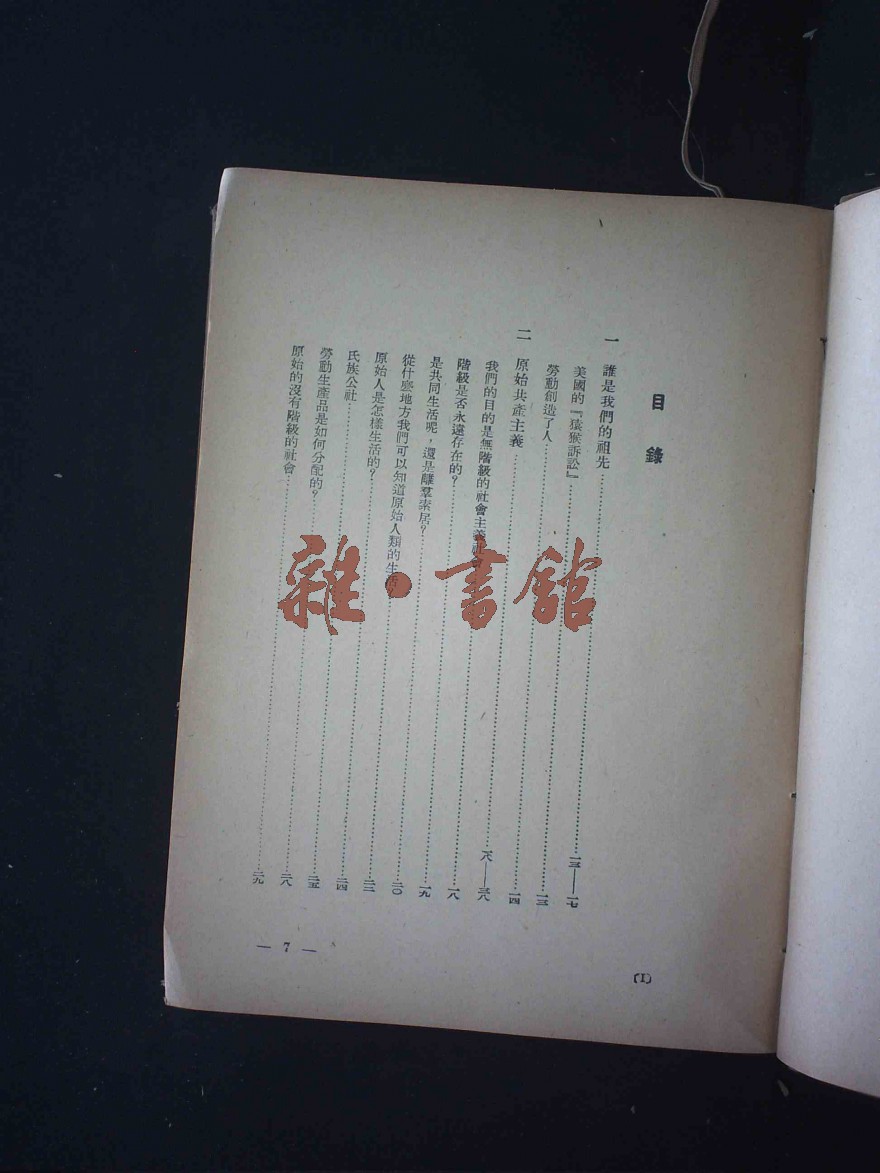 目錄
一 誰是我們的祖先……一三——一七
美國的『猿猴訴訟』……一三
勞動創造了人……一四
二 原始共產主義……一八——三八
我們的目的是無階級的社會主義社會……一八
階級是否永遠存在的?……一九
是共同生活呢,還是離羣索居?……二〇
從什麼地方我們可以知道原始人類的生活……二二
原始人是怎樣生活的?……二四
氏族公社……二五
勞動生產品是如何分配的?……二八
原始的沒有階級的社會……二九
— 7 —
(1)
雜·書館